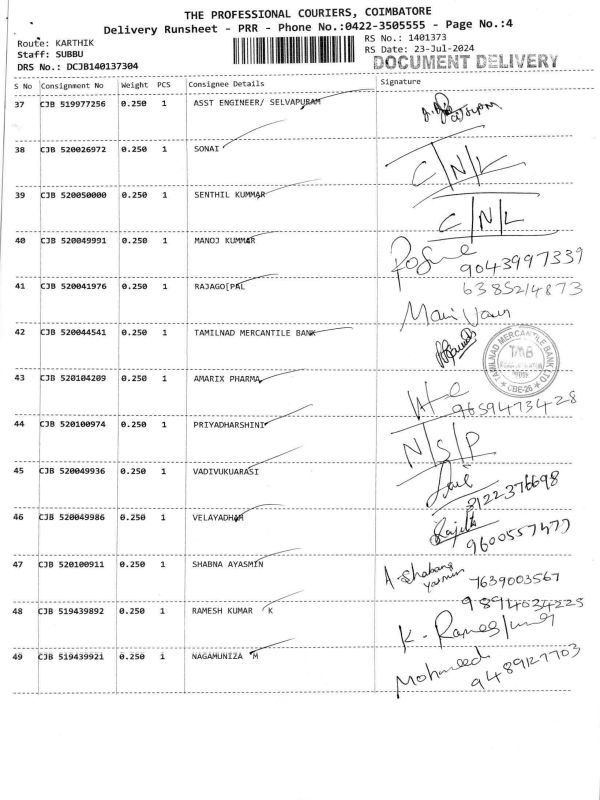 THE PROFESSIONAL COURIERS, COIMBATORE
Delivery Runsheet - PRR - Phone No.:0422-3505555 - Page No.:4
Route: KARTHIK
RS No.: 1401373
Staff: SUBBU
RS Date: 23-Jul-2024
DRS No.: DCJB140137304
DOCUMENT DELIVERY
S No Consignment No Weight PCS Consignee Details Signature
37 CJB 519977256 0.250 1 ASST ENGINEER/ SELVAPURAM
38 CJB 520026972 0.250 1 SONAI C/N/L
39 CJB 520050000 0.250 1 SENTHIL KUMMAR C/N/L
40 CJB 520049991 0.250 1 MANOJ KUMMAR 9043997339
41 CJB 520041976 0.250 1 RAJAGO[PAL 6385214873
42 CJB 520044541 0.250 1 TAMILNAD MERCANTILE BANK
TAMILNAD MERCANTILE BANK LTD
TMB
CBE-26
43 CJB 520104209 0.250 1 AMARIX PHARMA 9659473428
44 CJB 520100974 0.250 1 PRIYADHARSHINI N/S/P
45 CJB 520049936 0.250 1 VADIVUKUARASI 8122376698
46 CJB 520049986 0.250 1 VELAYADHAM 9600557477
47 CJB 520100911 0.250 1 SHABNA AYASMIN A. Shabana Yasmin 7639003567
48 CJB 519439892 0.250 1 RAMESH KUMAR K 9894034225
K. Ramesh Kumar
49 CJB 519439921 0.250 1 NAGAMUNIZA M Mohameed 9489127703